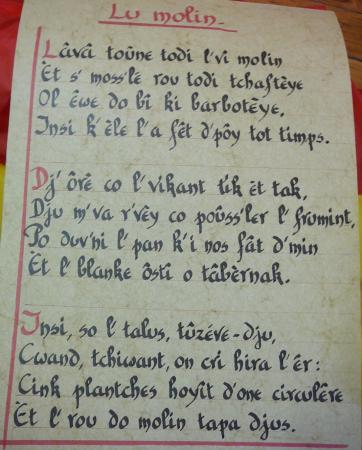 Lu molin.
Lâvâ toûne todi l'vi molin
Èt s' moss'lé rou todi tchaftêye
Ol êwe do bî ki barbotêye,
Insi k' èle l'a fêt d'pôy tot timps.
Dj' ôrè co l'vikant tik èt tak,
Dju m'va r'vèy co poûss'ler l' frumint,
Po duv'ni l' pan k'i nos fât d'min
Èt l' blanke ôsti o tâbèrnak.
Insi, so l' talus, tûzéve-dju,
Cwand, tchiwant, on cri hira l'ér:
Cink plantches hoyît d'one circulêre
Èt l' rou do molin tapa djus.